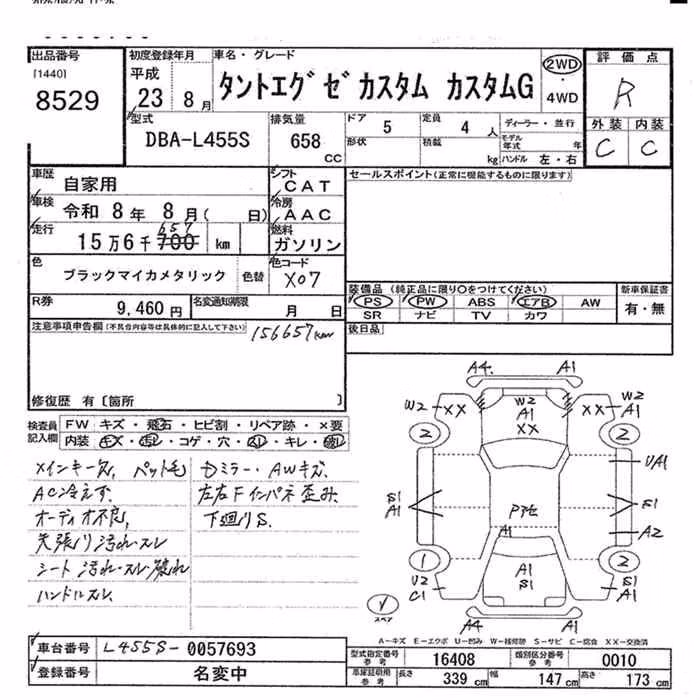 出品番号 初度登録年月 車名・グレード 評価点
[1440] 平成 タントエグゼカスタム カスタムG 2WD ・ 4WD R
8529 23年 8月
型式 排気量 ドア 定員 ディーラー・並行 外装 内装
DBA-L455S 658 CC 5 4人 モデル年式 年 C C
形状 積載 kg ハンドル 左・右
車歴 自家用 シフト CAT セールスポイント(正常に機能するものに限ります)
車検 令和 8年 8月( 日) 冷房 AAC
走行 15万6千 700 657 km 燃料 ガソリン
色 ブラックマイカメタリック 色替 色コード X07
装備品 (純正品に限り○をつけてください) 新車保証書
PS PW ABS エアB AW 有・無
SR ナビ TV カワ
R券 9,460円 名変通知期限 月 日
後日品
注意事項申告欄(不具合内容等は具体的に記入して下さい) 156657km
修復歴 有〔箇所 〕
検査員記入欄 FW キズ・飛石・ヒビ割・リペア跡・×要
内装 キズ・汚レ・コゲ・穴・スレ・キレ・破レ
×インキー欠, ペット毛
AC冷えず.
オーディオ不良,
天張り汚れ・スレ
シート汚れ・スレ破れ
ハンドルスレ
ドミラー・AWキズ.
左右Fインパネ歪み
下廻りS.
A4. A1
W2 XX W2 A1 XX XX W2 A1
2 2
UA1
S1 A1 PPE S1
A1 A2
1 A1 S1 2
U2 C1 S1 A1
スペア A4 A1
A-キズ E-エクボ U-凹み W-補修跡 S-サビ C-腐食 XX-交換済
車台番号 L455S-0057693
登録番号 名変中
型式指定番号 参考 16408 類別区分番号 参考 0010
車庫証明用 参考 長さ 339cm 幅 147cm 高さ 173cm